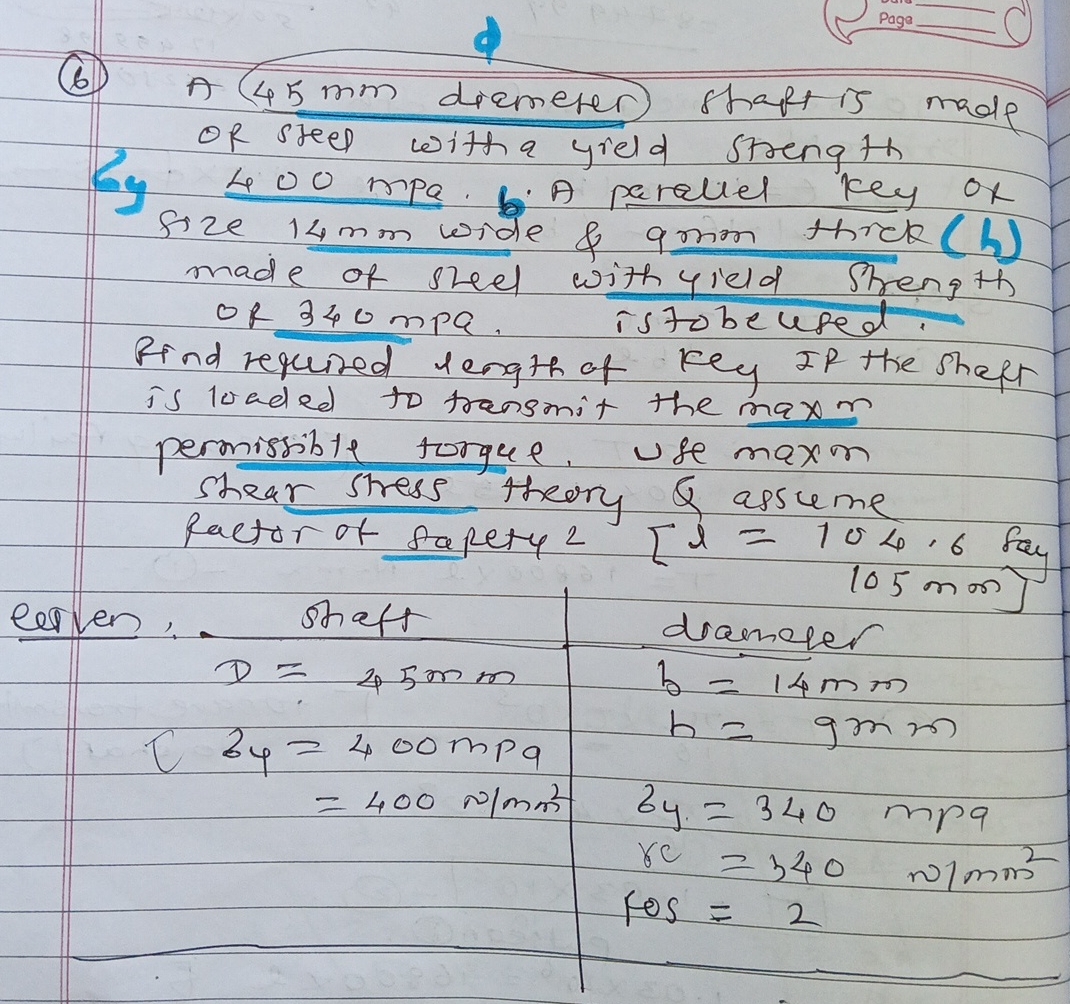 Page
d
6 A 45 mm diameter shaft is made
of steel with a yield strength
σy 400 mpa. b. A parallel key of
size 14mm wide & 9mm thick (h)
made of steel with yield strength
of 340 mpa. is to be used.
Find required length of key IF the shaft
is loaded to transmit the maxm
permissible torque. use maxm
shear stress theory & assume
factor of safety 2 [l = 104.6 say
105 mm]
shaft
diameter
D = 45mm
b = 14mm
h = 9mm
σy = 400mpa
= 400 N/mm²
σy = 340 mpa
= 340 N/mm²
FOS = 2